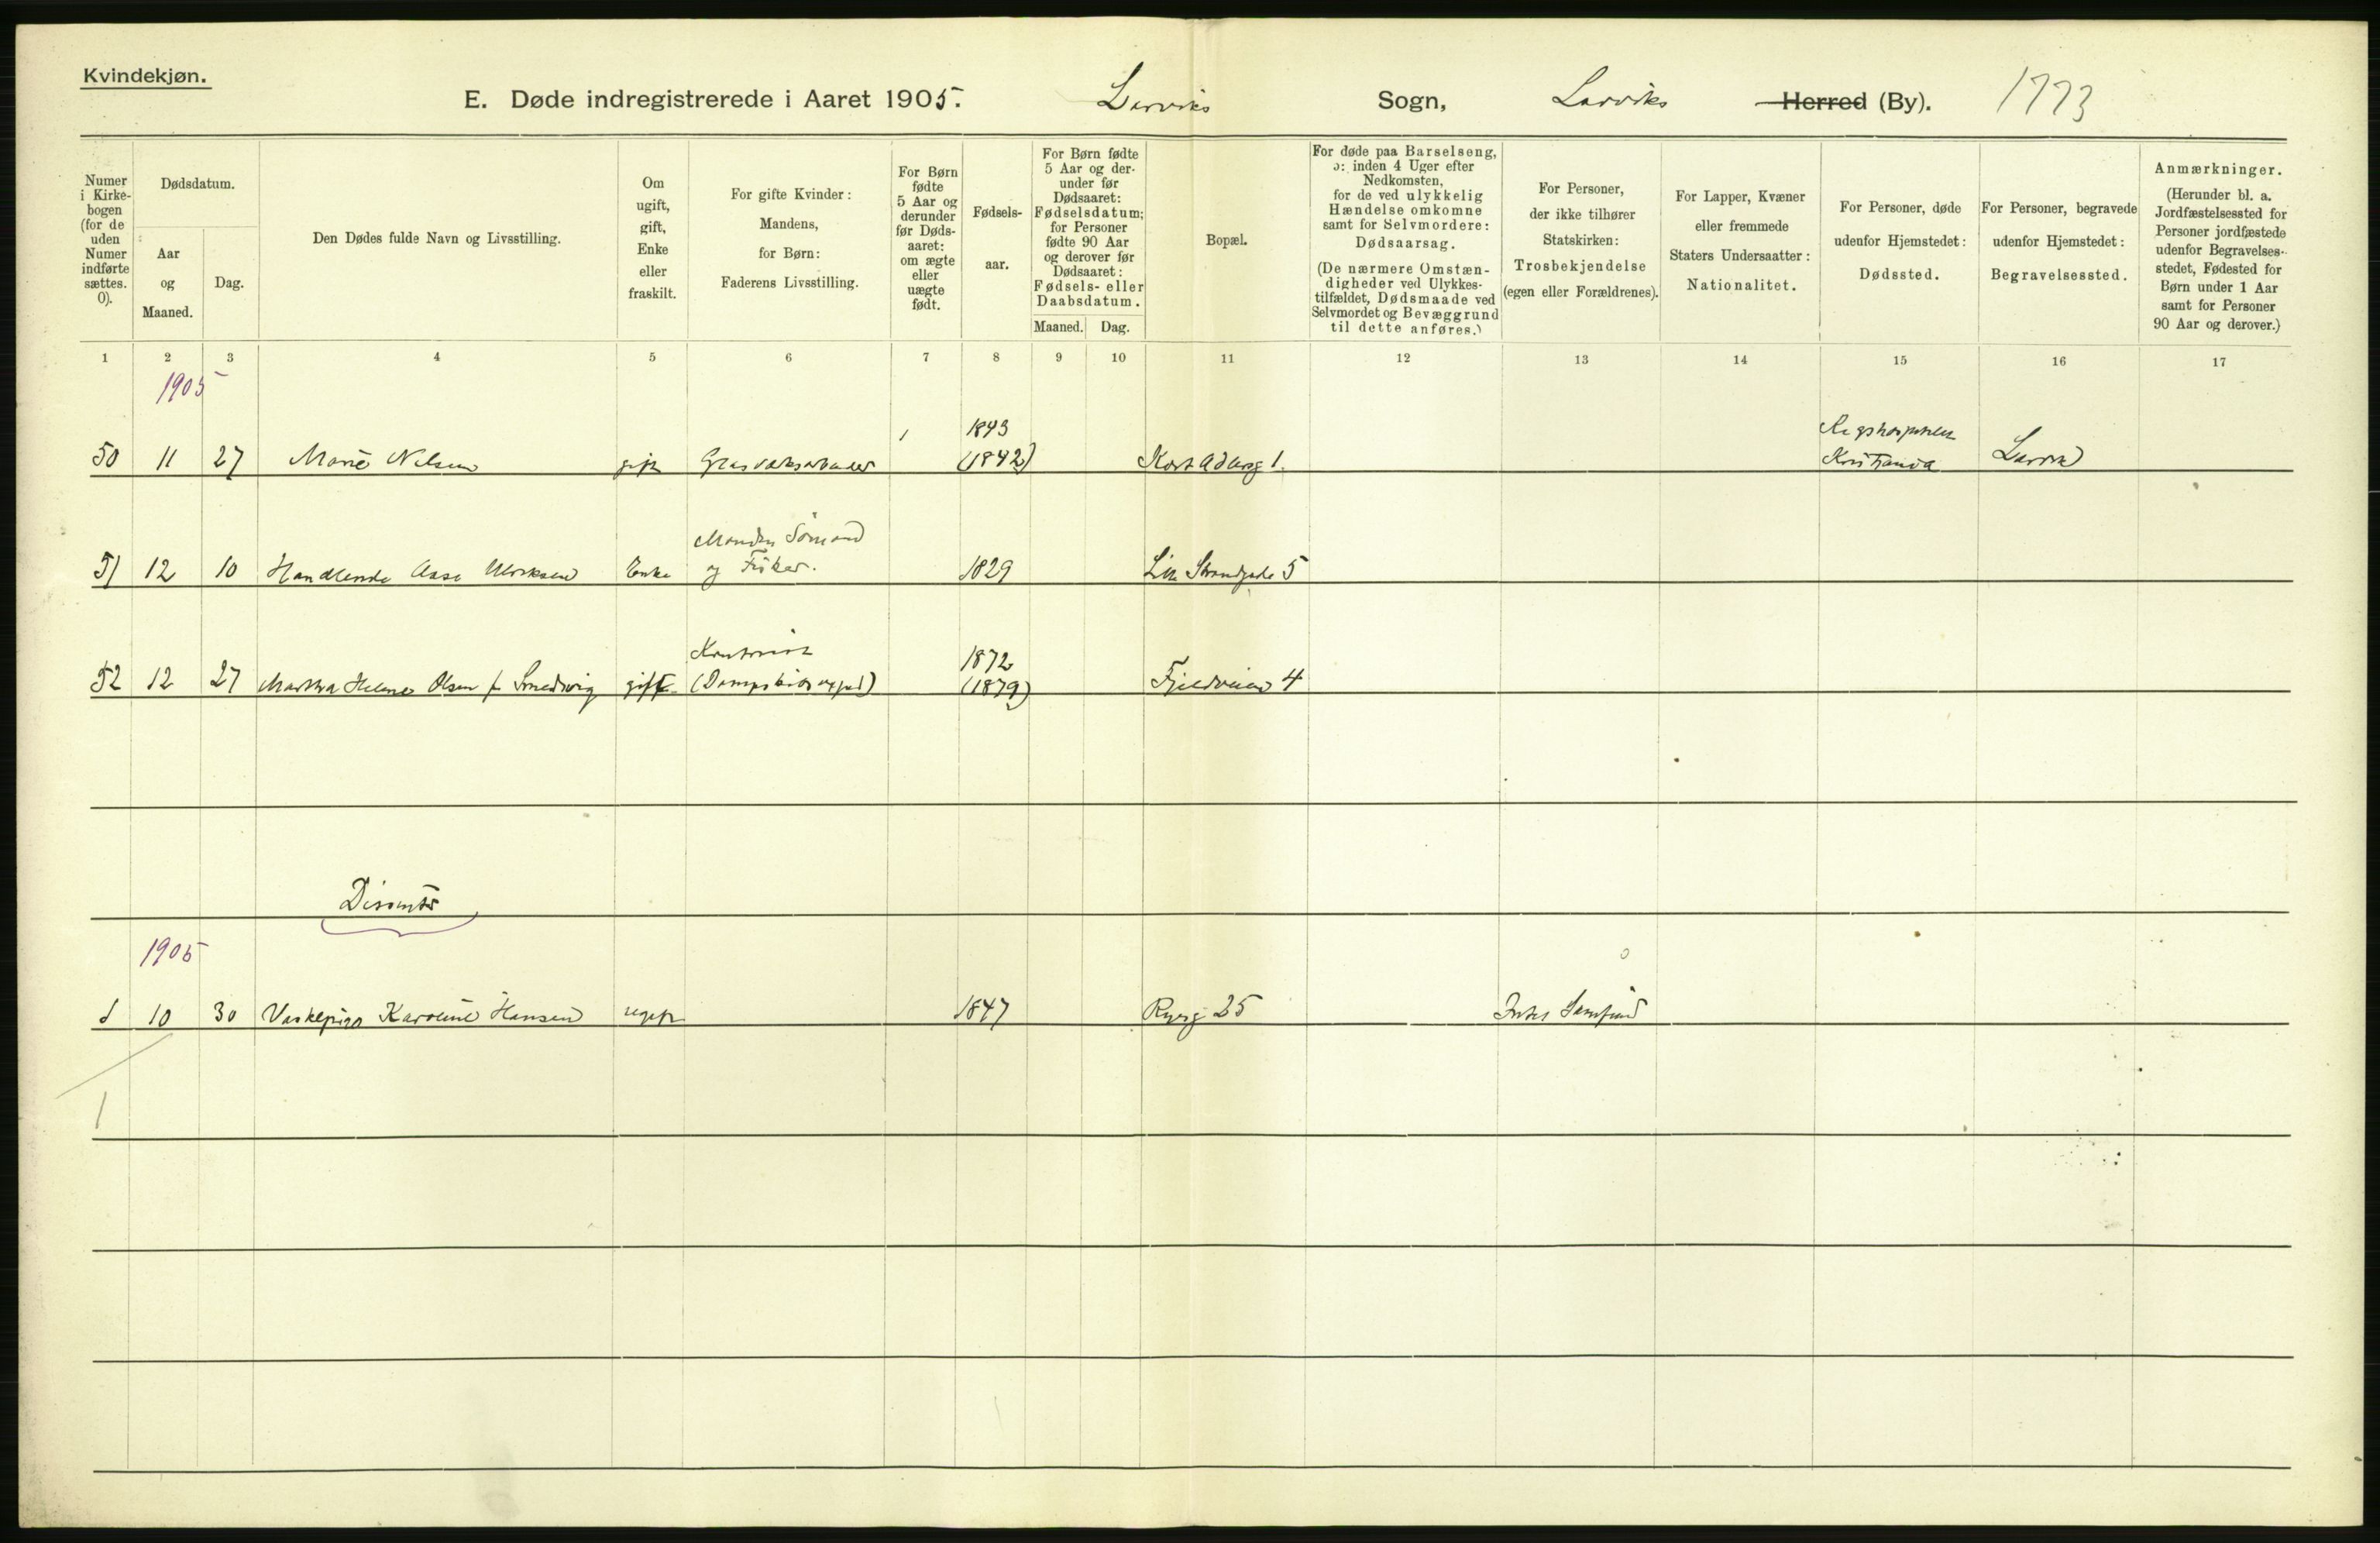 Kvindekjøn.
E. Døde indregistrerede i Aaret 1905. Larviks Sogn, Larviks Herred (By). 1773
Numer i Kirkebogen (for de uden Numer indførte sættes. 0).
Dødsdatum.
Aar og Maaned.
Dag.
Den Dødes fulde Navn og Livsstilling.
Om ugift, gift, Enke eller fraskilt.
For gifte Kvinder: Mandens, for Børn: Faderens Livsstilling.
For Børn fødte 5 Aar og derunder før Dødsaaret: om ægte eller uægte født.
Fødselsaar.
For Børn fødte 5 Aar og derunder før Dødsaaret: Fødselsdatum; for Personer fødte 90 Aar og derover før Dødsaaret: Fødsels- eller Daabsdatum.
Maaned. Dag.
Bopæl.
For døde paa Barselseng, ɔ: inden 4 Uger efter Nedkomsten, for de ved ulykkelig Hændelse omkomne samt for Selvmordere: Dødsaarsag.
(De nærmere Omstændigheder ved Ulykkestilfældet, Dødsmaade ved Selvmordet og Bevæggrund til dette anføres.)
For Personer, der ikke tilhører Statskirken: Trosbekjendelse (egen eller Forældrenes).
For Lapper, Kvæner eller fremmede Staters Undersaatter: Nationalitet.
For Personer, døde udenfor Hjemstedet: Dødssted.
For Personer, begravede udenfor Hjemstedet: Begravelsessted.
Anmærkninger.
(Herunder bl. a. Jordfæstelsessted for Personer jordfæstede udenfor Begravelsesstedet, Fødested for Børn under 1 Aar samt for Personer 90 Aar og derover.)
1 2 3 4 5 6 7 8 9 10 11 12 13 14 15 16 17
1905
1843 Rigshospitalet
50 11 27 Marie Nilsen gift (1842) 1. Kristiania Larvik
Manden Sømand
51 12 10 Handlende Aase Ulriksen Enke og Fisker. 1829 Lille Strandgade 5
1872
52 12 27 Martha Helene Olsen f. Smedsvig gift (1879) Fjeldveien 4
Dissenter
1905
1 10 30 Vaskepige Karoline Hansen ugift 1847 25 Samfund
1